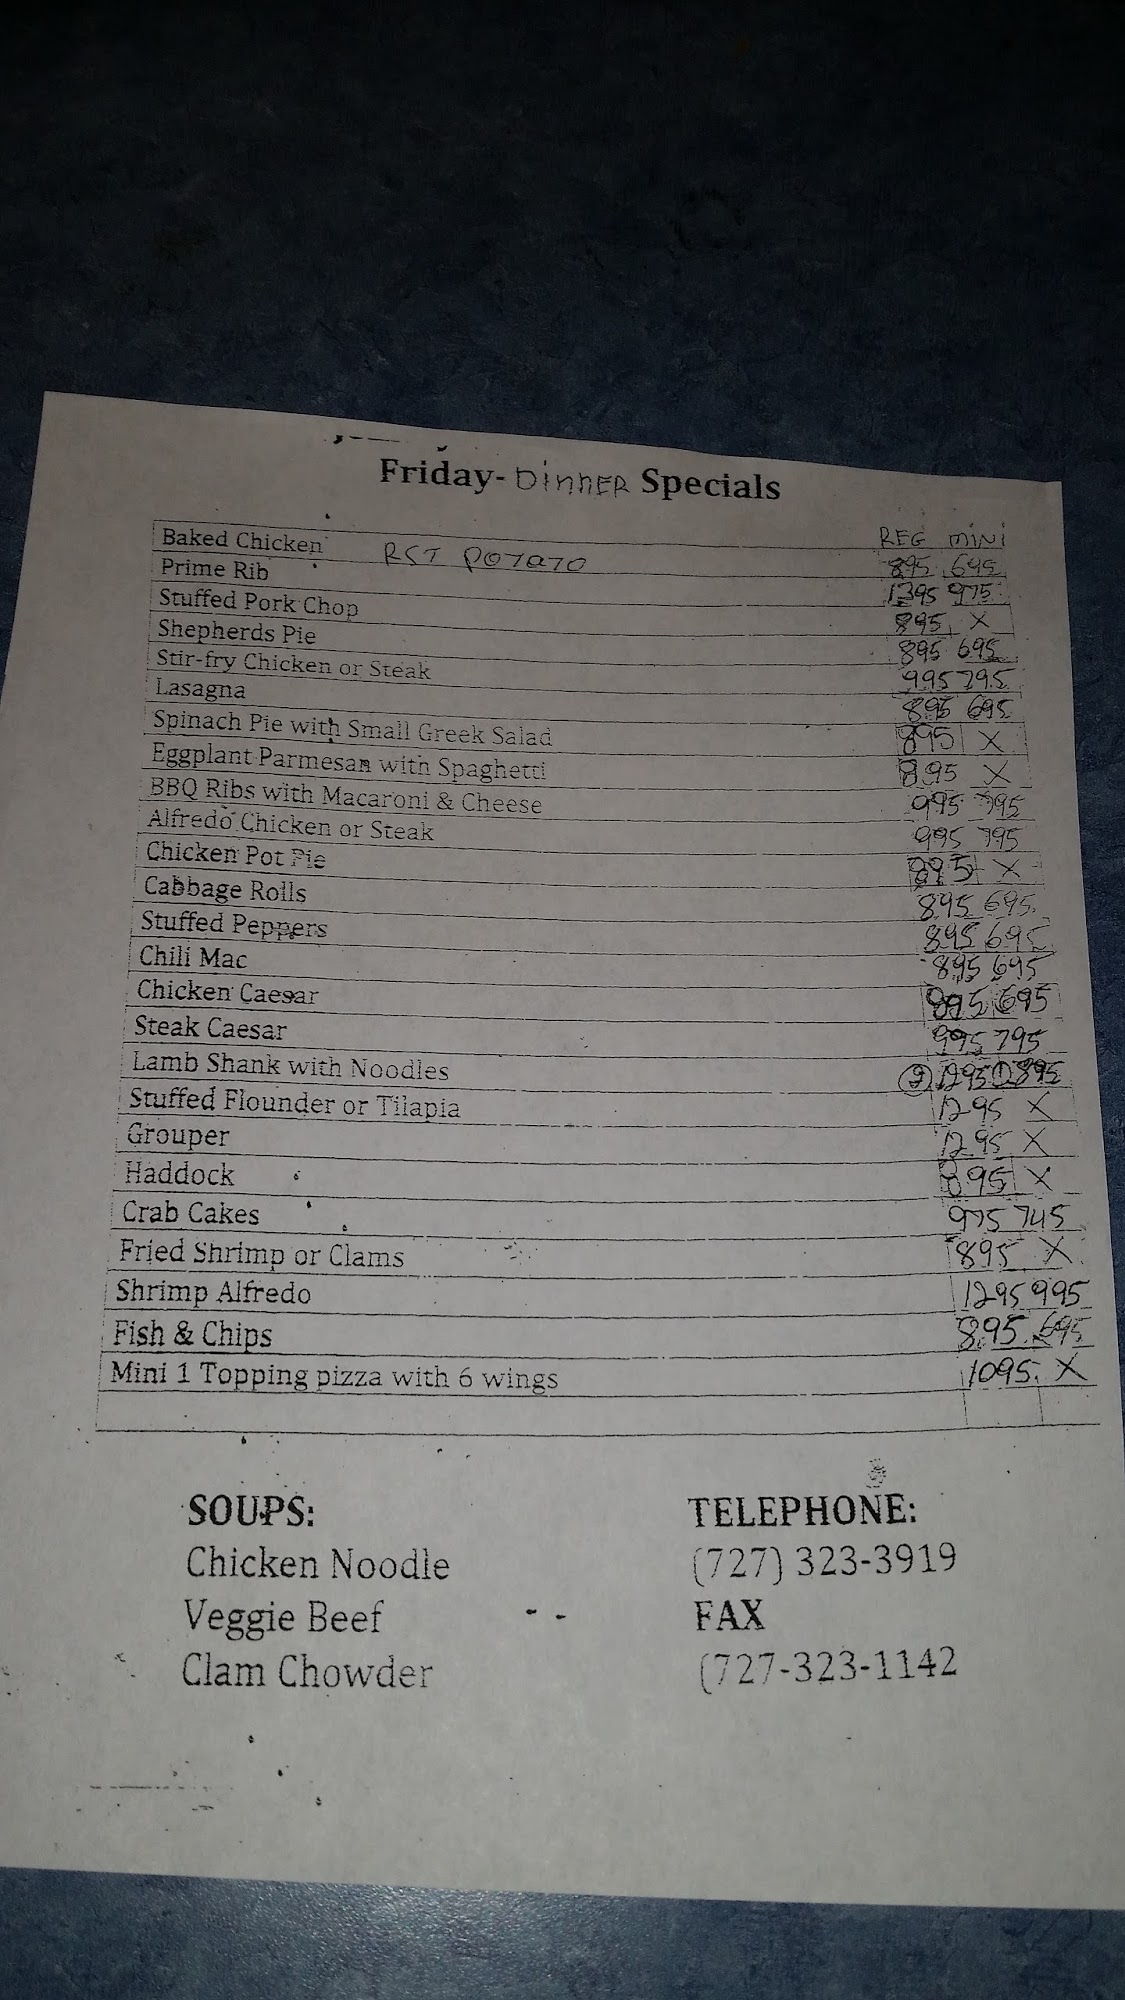 Friday- Dinner Specials
REG MINI
Baked Chicken RST POTATO 895 695
Prime Rib 1395 975
Stuffed Pork Chop 895 X
Shepherds Pie 895 695
Stir-fry Chicken or Steak 995 795
Lasagna 895 695
Spinach Pie with Small Greek Salad 895 X
Eggplant Parmesan with Spaghetti 895 X
BBQ Ribs with Macaroni & Cheese 995 795
Alfredo Chicken or Steak 995 795
Chicken Pot Pie 895 X
Cabbage Rolls 895 695
Stuffed Peppers 895 695
Chili Mac 895 695
Chicken Caesar 895 695
Steak Caesar 995 795
Lamb Shank with Noodles 2 1295 1 895
Stuffed Flounder or Tilapia 1295 X
Grouper 1295 X
Haddock 895 X
Crab Cakes 975 745
Fried Shrimp or Clams 895 X
Shrimp Alfredo 1295 995
Fish & Chips 895 695
Mini 1 Topping pizza with 6 wings 1095 X
SOUPS:
Chicken Noodle
Veggie Beef
Clam Chowder
TELEPHONE:
(727) 323-3919
FAX
(727-323-1142